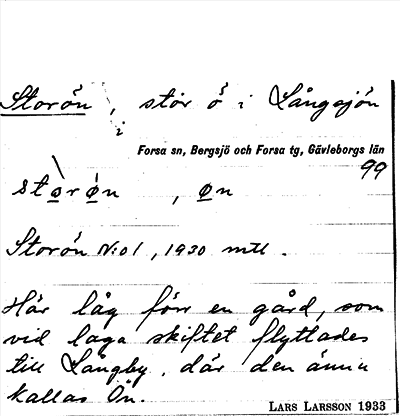 Storön, stor ö i Långsjön
Forsa sn, Bergsjö och Forsa tg, Gävleborgs län
99
størøn, øn
Storön No1, 1930 mtl.
Här låg förr en gård, som
vid laga skiftet flyttades
till Långby, där den ännu
kallas Ön.
LARS LARSSON 1933